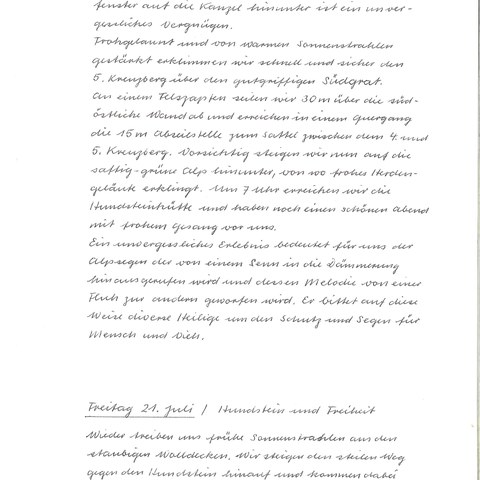 fenster auf die Kanzel hinunter ist ein unver-
gessliches Vergnügen.
Frohgelaunt und von warmen Sonnenstrahlen
gestärkt erklimmen wir schnell und sicher den
5. Kreuzberg über den gutgriffigen Südgrat.
An einem Felszapfen seilen wir 30m über die süd-
östliche Wand ab und erreichen in einem Quergang
die 15m Abseilstelle zum Sattel zwischen dem 4. und
5. Kreuzberg. Vorsichtig steigen wir nun auf die
saftig-grüne Alp hinunter, von wo frohes Herden-
geläut erklingt. Um 7 Uhr erreichen wir die
Hundsteinhütte und haben noch einen schönen Abend
mit frohem Gesang vor uns.
Ein unvergessliches Erlebnis bedeutet für uns der
Alpsegen der von einem Senn in die Dämmerung
hinausgerufen wird und dessen Melodie von einer
Fluh zur andern geworfen wird. Er bittet auf diese
Weise diverse Heilige um den Schutz und Segen für
Mensch und Vieh.
Freitag 21. Juli / Hundstein und Freiheit
Wieder treiben uns frühe Sonnenstrahlen aus den
staubigen Wolldecken. Wir steigen den steilen Weg
gegen den Hundstein hinauf und kommen dabei